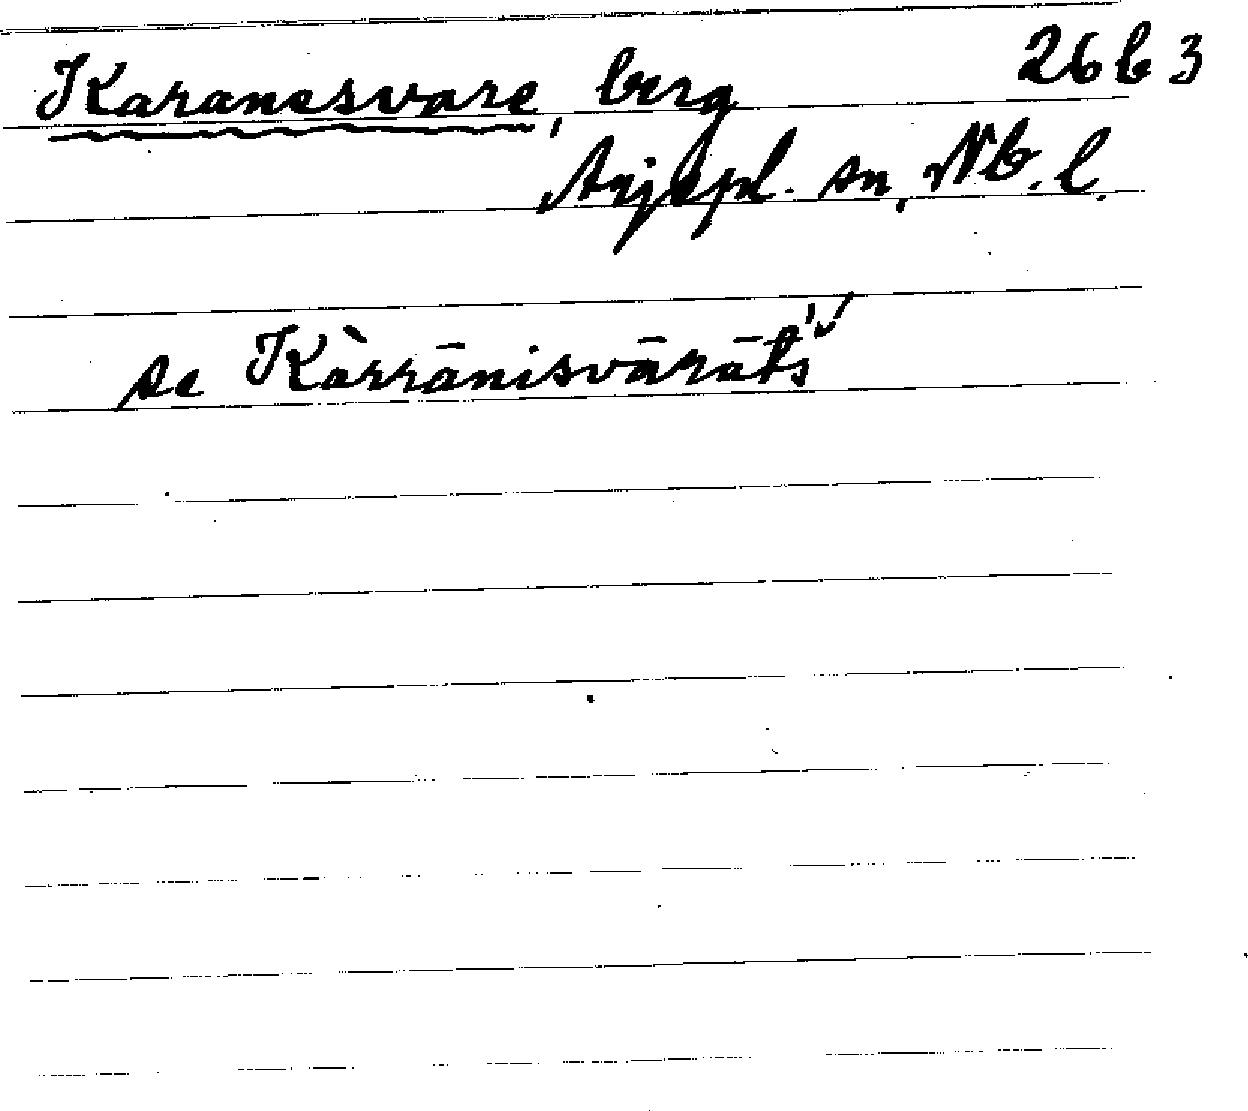 Karanesvare, berg 26 b 3
Arjepl. sn, Nb. l.
se Kàrrānisvārāťs